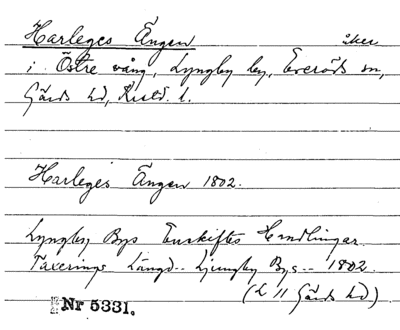 Harleges Ängen åker
i Östre vång, Lyngby by, Everöds sn,
Gärds hd, Kristd. l.
Harleges Ängen 1802.
Lyngby Bys Enskiftes Handlingar
Taxerings Längd.. Ljungby Bys.. 1802.
(L 11 Gärds hd)
Nr 5331.